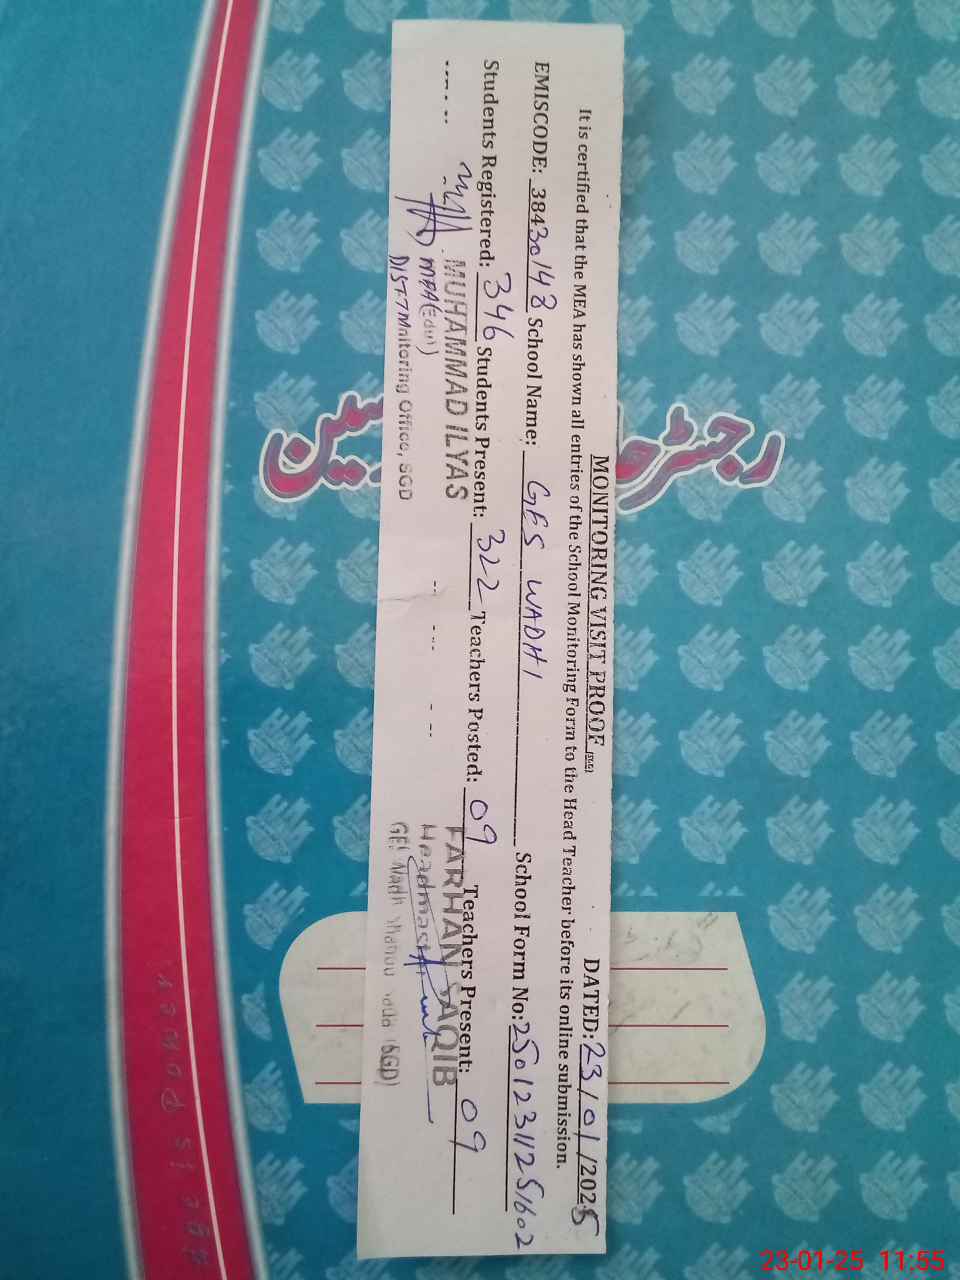 MONITORING VISIT PROOF DATED: 23/01/2025
It is certified that the MEA has shown all entries of the School Monitoring Form to the Head Teacher before its online submission.
EMISCODE: 38430148 School Name: GES WADHI School Form No: 25012311251602
Students Registered: 346 Students Present: 322 Teachers Posted: 09 Teachers Present: 09
MUHAMMAD ILYAS
MEA(Edu)
DISTT Mnitoring Office, SGD
FARHAN SAQIB
Headmaster
(SGD)
رجسٹر
23-01-25 11:55